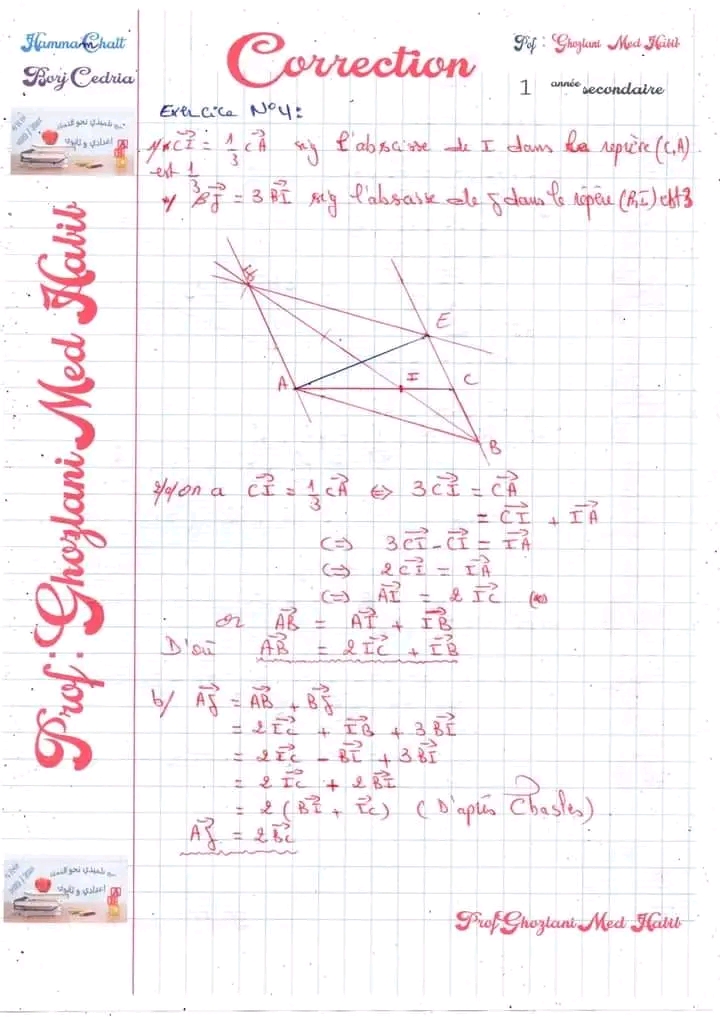 Hammam Chatt
Borj Cedria
Correction
Pof : Ghozlani Med Habib
1 année secondaire
Exercice N°4:
1/* CI = 1/3 CA sig l'abscisse de I dans le repère (C,A)
est 1/3
*/ BJ = 3 BI sig l'abscisse de J dans le repère (B,I) est 3
E
A
I
C
B
2/a/ on a CI = 1/3 CA ⇔ 3CI = CA
= CI + IA
⇔ 3CI - CI = IA
⇔ 2CI = IA
⇔ AI = 2 IC (*)
or AB = AI + IB
D'où AB = 2IC + IB
b/ AJ = AB + BJ
= 2IC + IB + 3BI
= 2IC - BI + 3BI
= 2 IC + 2BI
= 2(BI + IC) (D'après Chasles)
AJ = 2BC
Prof : Ghozlani Med Habib
Prof Ghozlani Med Habib